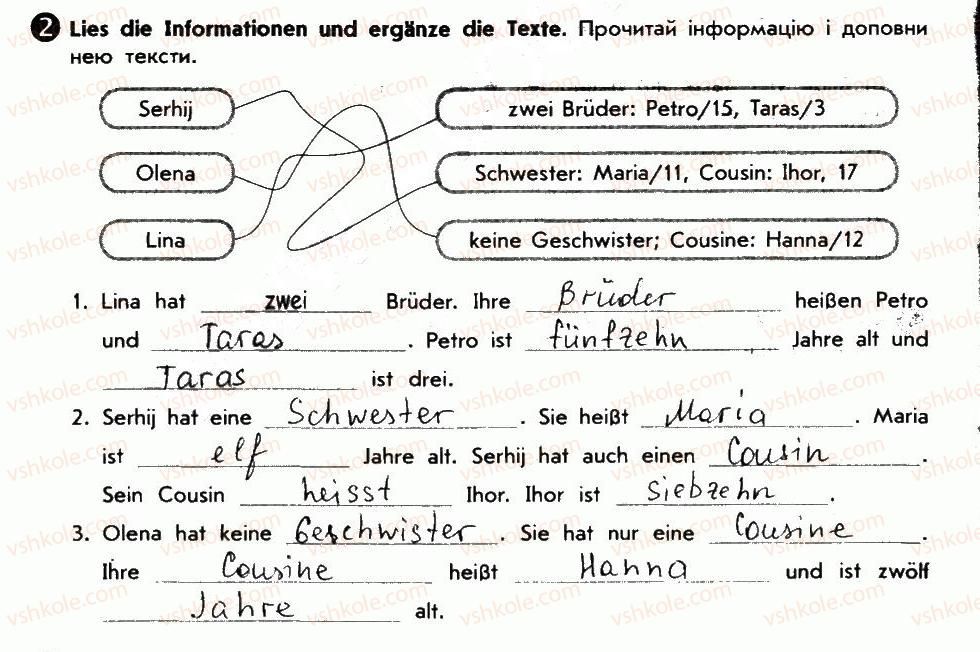 2 Lies die Informationen und ergänze die Texte. Прочитай інформацію і доповни
нею тексти.
Serhij zwei Brüder: Petro/15, Taras/3
Olena Schwester: Maria/11, Cousin: Ihor, 17
Lina keine Geschwister; Cousine: Hanna/12
1. Lina hat zwei Brüder. Ihre Brüder heißen Petro
und Taras. Petro ist fünfzehn Jahre alt und
Taras ist drei.
2. Serhij hat eine Schwester. Sie heißt Maria. Maria
ist elf Jahre alt. Serhij hat auch einen Cousin.
Sein Cousin heisst Ihor. Ihor ist siebzehn.
3. Olena hat keine Geschwister. Sie hat nur eine Cousine.
Ihre Cousine heißt Hanna und ist zwölf
Jahre alt.
vshkole.com